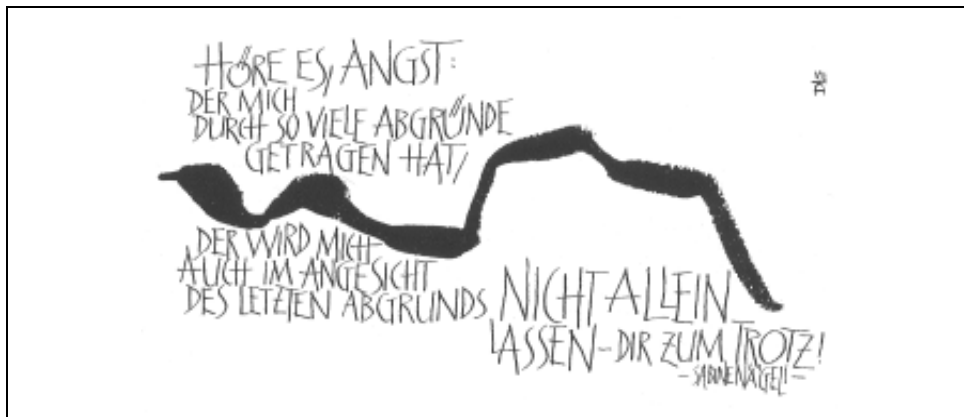 HÖRE ES, ANGST:
DER MICH
DURCH SO VIELE ABGRÜNDE
GETRAGEN HAT,
DER WIRD MICH
AUCH IM ANGESICHT
DES LETZTEN ABGRUNDS NICHT ALLEIN
LASSEN – DIR ZUM TROTZ!
– SABINE NÄGELI –